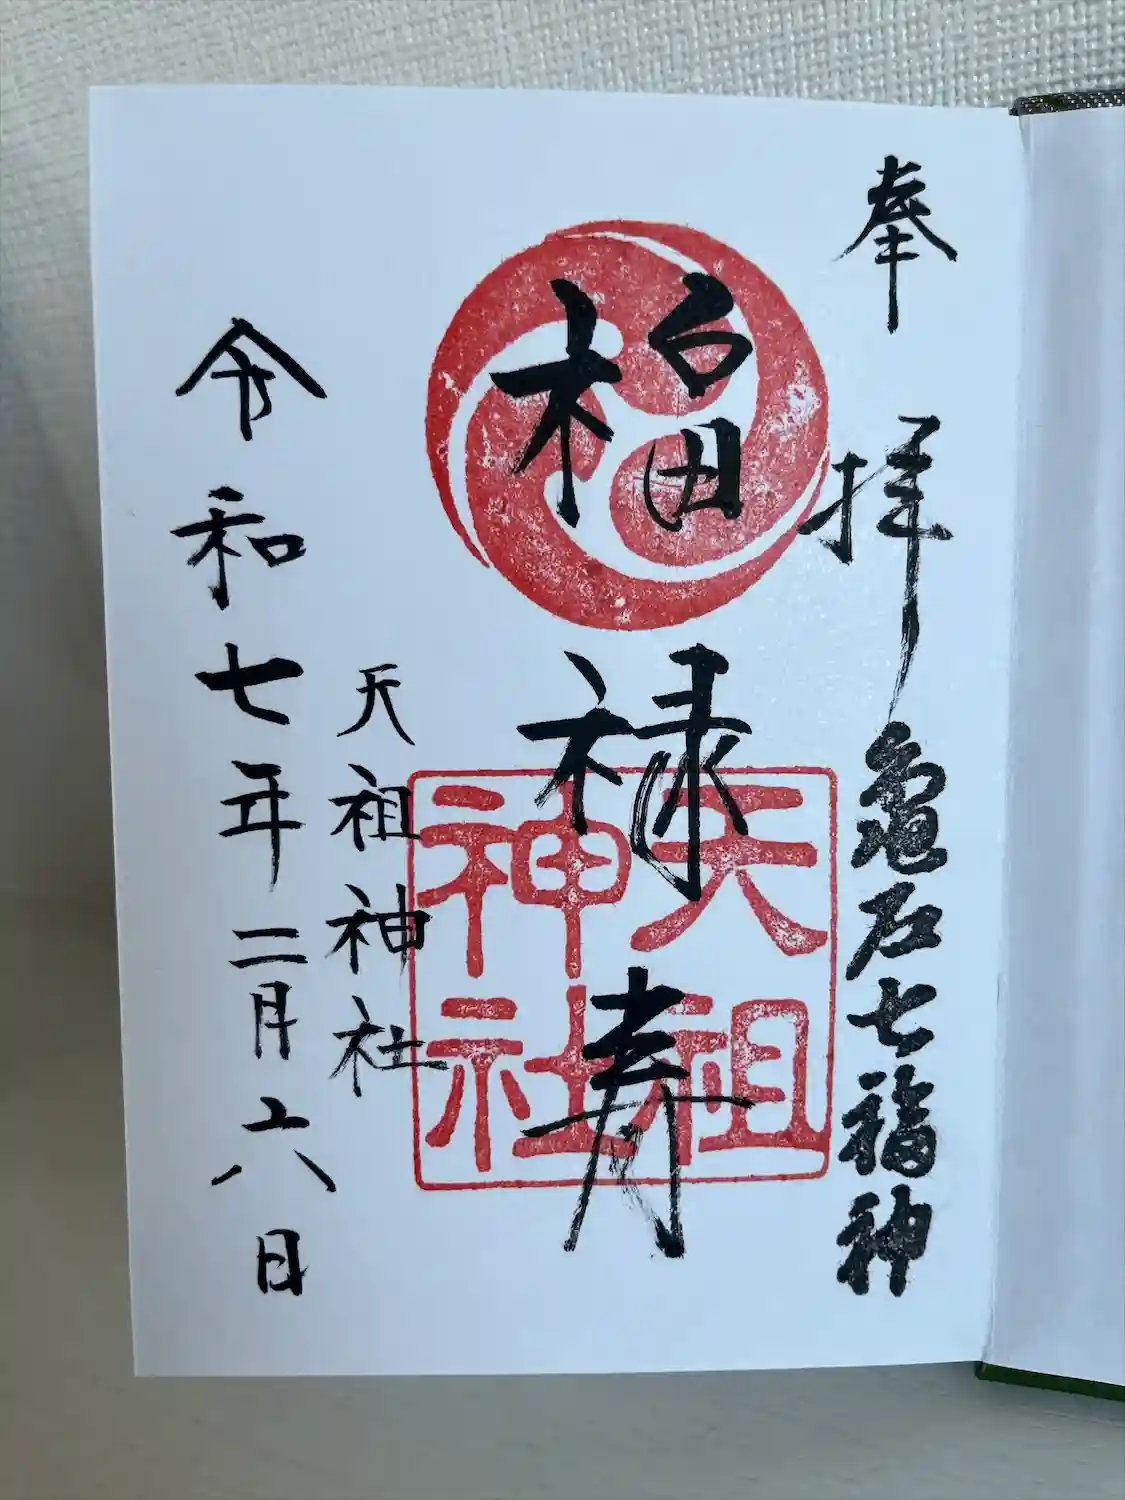 奉拝
亀戸七福神
福禄寿
天祖神社
天祖神社
令和七年二月六日